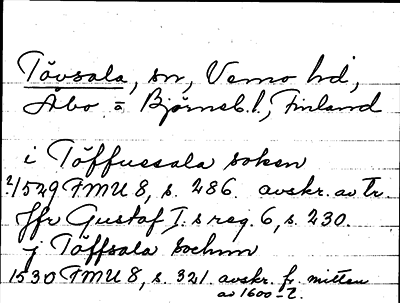 Tövsala, sn, Vemo hd,
Åbo o. Björneb. l., Finland
i Töffussala soken
2/1529 FMU 8, s. 286. avskr. av tr.
Jfr Gustaf I:s reg. 6, s. 230.
j Töffsala sochnn
1530 FMU 8, s. 321. avskr. fr. mitten
av 1600-t.